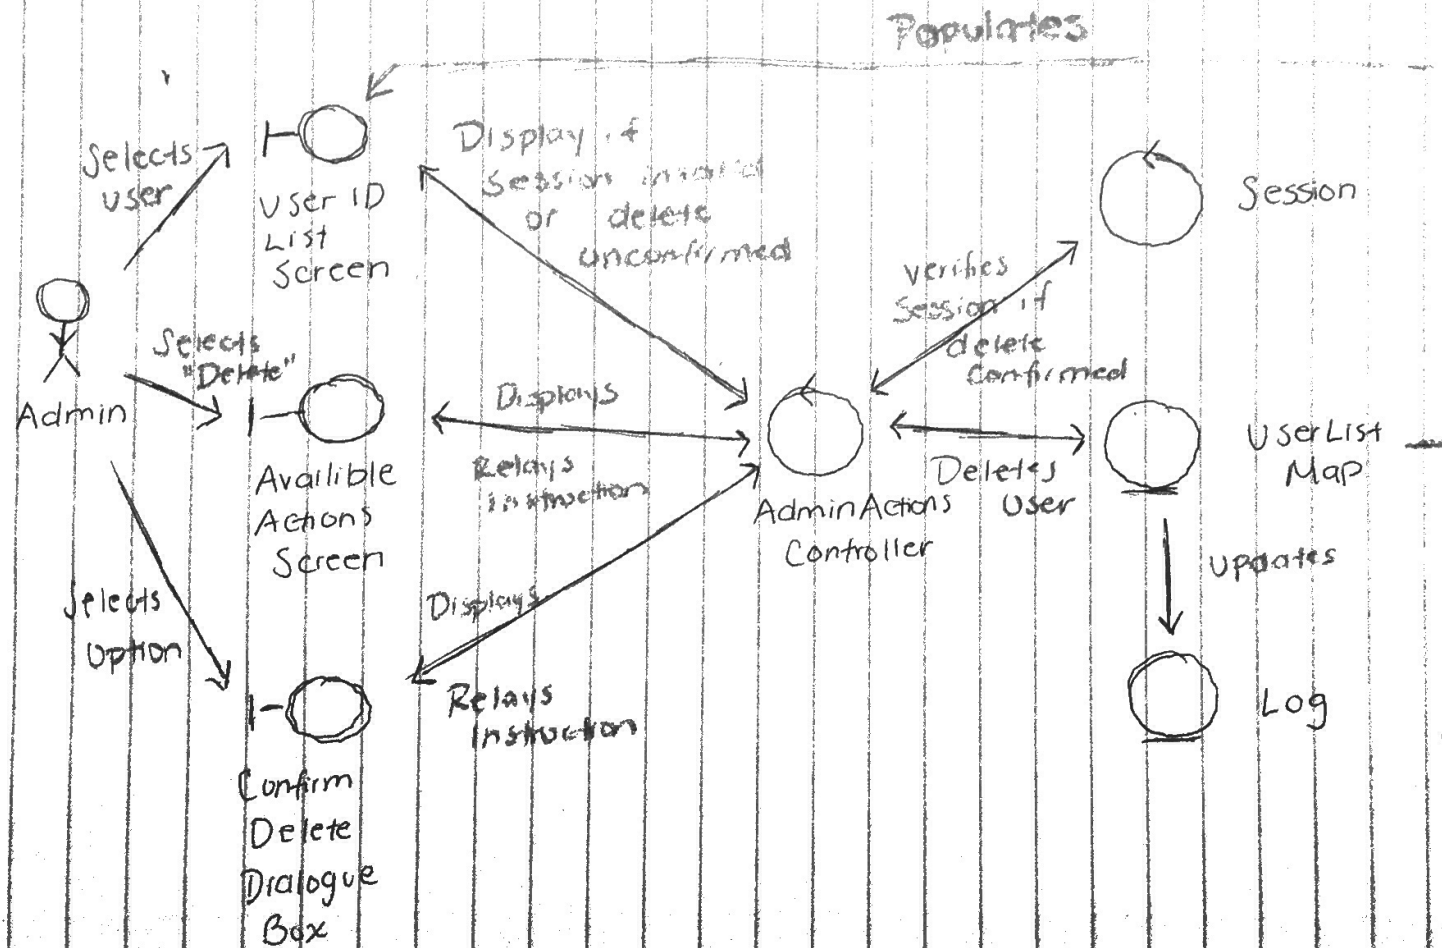 Populates
Selects
user
User ID
List
Screen
Display if
Session invalid
or delete
unconfirmed
Session
verifies
Session if
delete
confirmed
Admin
Selects
"Delete"
Availible
Actions
Screen
Displays
Relays
instruction
AdminActions
Controller
Deletes
User
UserList
Map
updates
Log
Selects
Option
Displays
Relays
Instruction
Confirm
Delete
Dialogue
Box